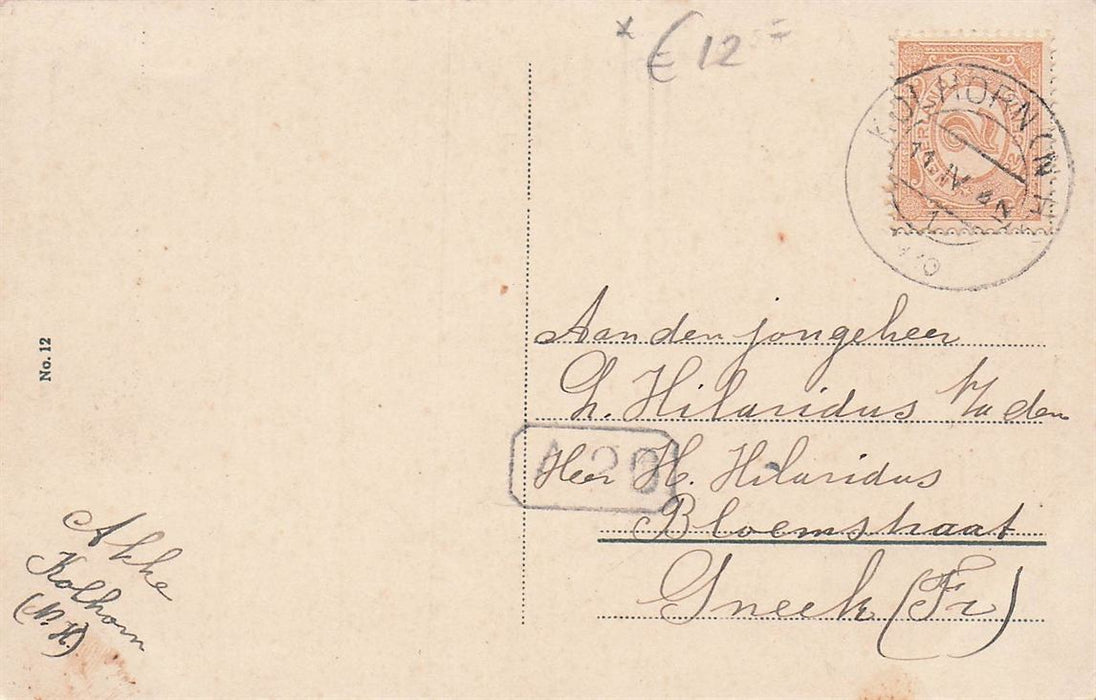 € 12
KOLHORN (N
11.IV
Aan den jongeheer
H. Hilaridus p/a den
Heer H. Hilaridus
Bloemstraat
Sneek (Fr)
No. 12
Akke
Kolhorn
(N.H.)